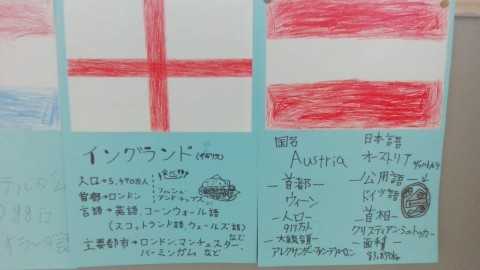 テルダム
イングランド(イギリス)
人口→5,490万人
首都→ロンドン
食べ物
フィッシュ
アンドチップス
言語→英語、コーンウォール語
(スコットランド語、ウェールズ語)
など
主要都市→ロンドン、マンチェスター、
バーミンガム など
国名 日本語
Austria オーストリア
首都 公用語
ウィーン ドイツ語
人口 首相
917万人 クリスティアン・シュトッカー
大統領 面積
アレクサンダー・ファン・デア・ベレン 83,870km²